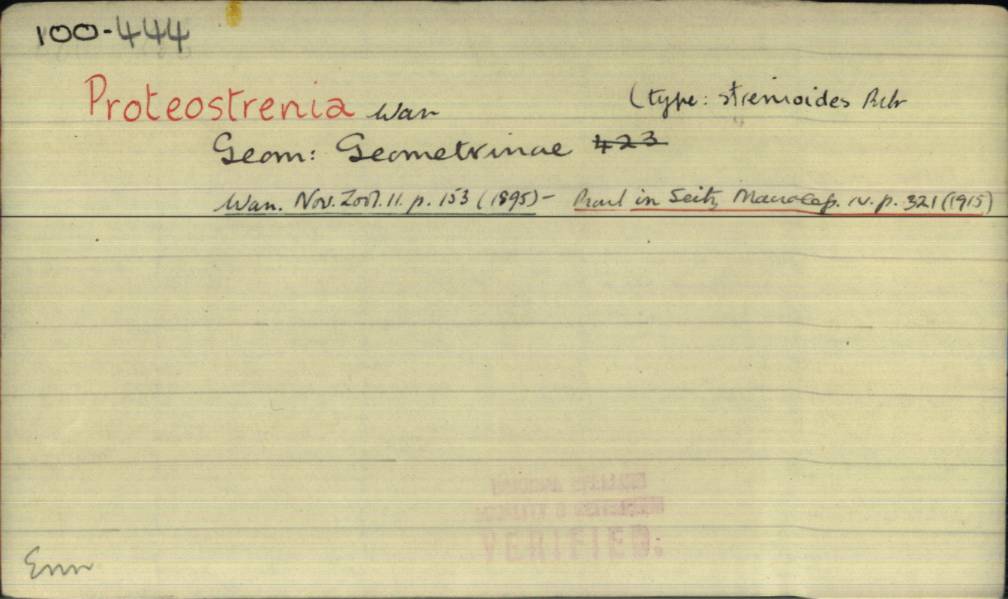 100-444
Proteostrenia Warr (type: strenioides Btlr
Geom: Geometrinae 423
Warr. Nov. Zool. II. p. 153 (1895) - Prout in Seitz Macrolep. IV. p. 321 (1915)
VERIFIED:
Enn